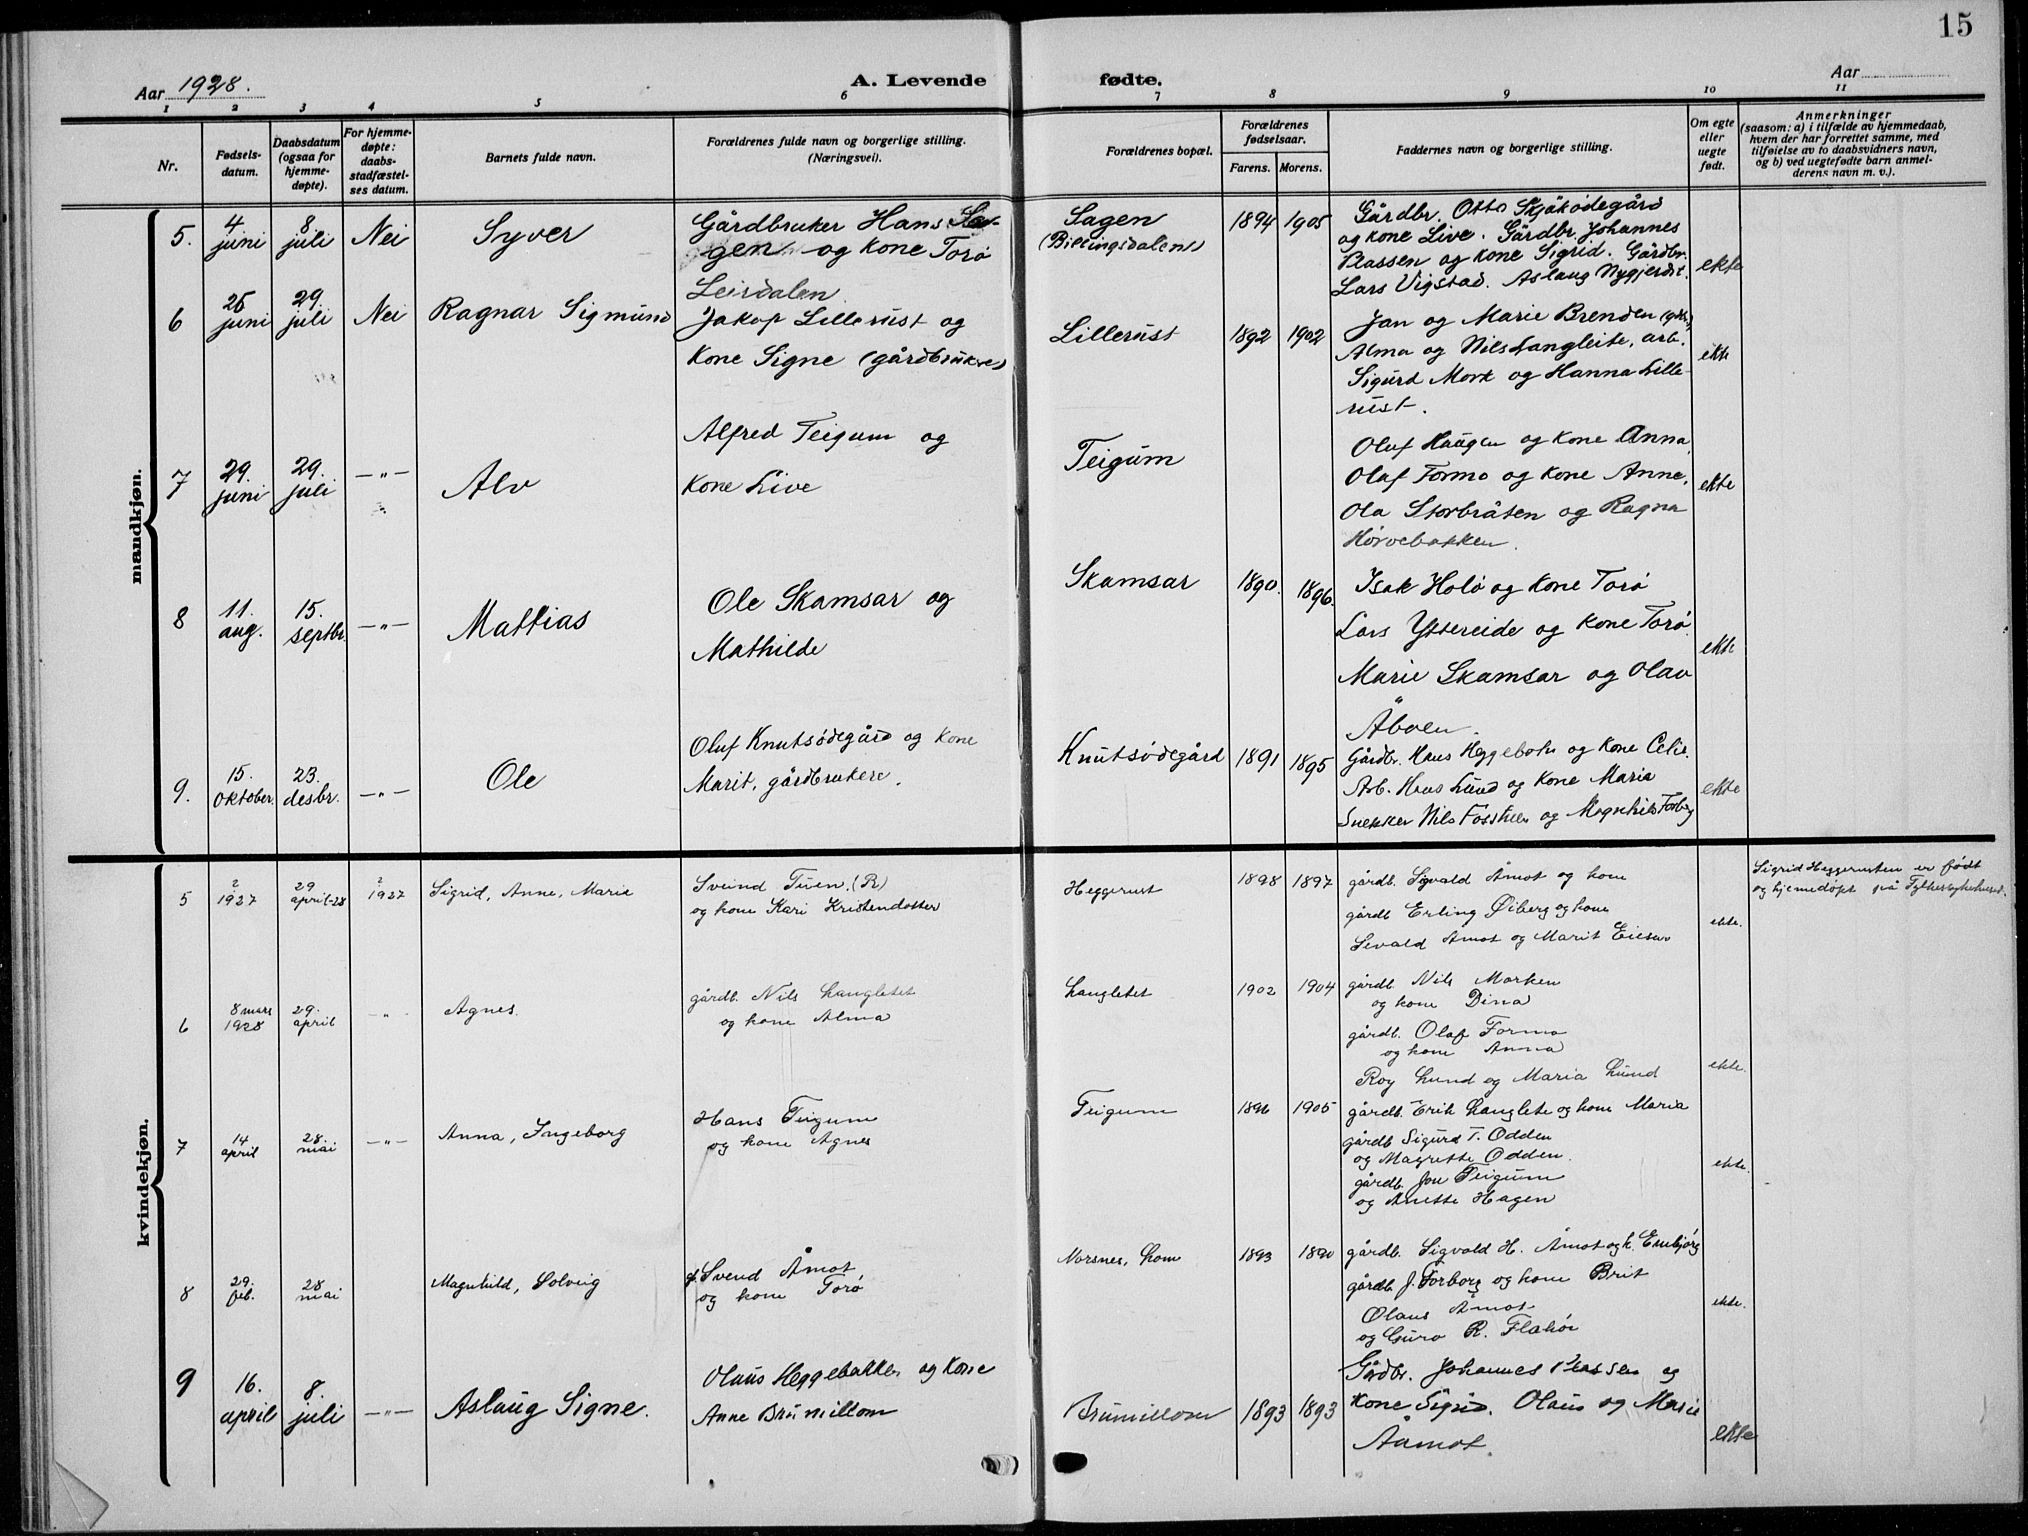 15
Aar 1928.
A. Levende fødte.
Aar
1 2 3 4 5 6 7 8 9 10 11
Nr.
Fødsels-
datum.
Daabsdatum
(ogsaa for
hjemme-
døpte).
For hjemme-
døpte:
daabs-
stadfæstel-
ses datum.
Barnets fulde navn.
Forældrenes fulde navn og borgerlige stilling.
(Næringsvei).
Forældrenes bopæl.
Forældrenes
fødselsaar.
Farens. Morens.
Faddernes navn og borgerlige stilling.
Om egte
eller
uegte
født.
Anmerkninger
(saasom: a) i tilfælde av hjemmedaab,
hvem der har forrettet samme, med
tilføielse av to daabsvidners navn,
og b) ved uegtefødte barn anmel-
derens navn m. v.).
mandkjøn.
5. 4 juni 8 juli Nei Syver
Gårdbruker Hans Sa-
gen og kone Torø
Leirdalen
Sagen
(Billingsdalen)
1894 1905
Gårdbr. Otto Skjåkødegård
og kone Live. Gårdbr. Johannes
Plassen og kone Sigrid. Gårdbr.
Lars Vigstad. Aslaug Nygjerdet.
ekte
6 25 juni 29. juli Nei Ragnar Sigmund
Jakop Lillerust og
kone Signe (gårdbruker)
Lillerust
1892 1902
Jan og Marie Brenden
Alma og Nils Langleite, arb.
Sigurd Mork og Hanna Lille-
rust.
ekte
7 29. juni 29. juli -"- Alv
Alfred Teigum og
kone Live
Teigum
Oluf Haugen og kone Anna,
Olaf Formo og kone Anne,
Ola Storbråten og Ragna
Horvebakken.
ekte
8 11. aug. 15. septbr. -"- Mattias
Ole Skamsar og
Mathilde
Skamsar
1890. 1896.
Isak Holø og kone Torø
Lars Yttereide og kone Torø.
Marie Skamsar og Olav
Åboen.
ekte
9. 15. oktober. 23. desbr. -"- Ole
Oluf Knutsødegård og kone
Marit, gårdbrukere.
Knutsødegård
1891 1895
Gårdbr. Hans Heggebotn og kone
Arb. Hans Lund og kone Maria
Snekker Nils Fossheim og Magnhild Forberg
ekte
kvindekjøn.
5 2/1927 29 april-28 2/1927 Sigrid, Anne, Marie
Sveind Tuen. (R)
og kone Kari Kristendotter
Heggerust
1898 1897
gårdb. Sigvald Åmot og kone
gårdb Erling Øiberg og kone
Sevald Åmot og Marit
ekte.
Sigrid Heggerusten er født
og hjemedøpt på Fylkessykehuset.
6 8 mars 1928 29. april -"- Agnes.
gårdb. Nils Langletet
og kone Alma
Langletet
1902 1904
gårdb. Nils Marken
og kone Dina
gårdb. Olaf Formo
og kone Anna
Roy Lund og Maria Lund
ekte.
7 14 april 28. mai -"- Anna, Ingeborg
Hans Teigum
og kone Agnes
Teigum
1896 1905
gårdb. Erik Langlete og kone Maria
gårdb Sigurd T. Odden
og Magrette Odden.
gårdb. Jon Teigum
og Anette Hagen
ekte.
8 29. feb. 28 mai Magnhild, Solveig
Svend Åmot
og kone Torø
Norsnes, Lom
1893 1890
gårdb. Sigvald H. Åmot og k. Embjørg
gårdb. J. Forborg og kone Brit
Olaus Åmot
og Guro R. Flakøi
ekte.
9 16. april 8. juli -"- Aslaug Signe.
Olaus Heggebakken og kone
Anne Brumillom
Brumillom
1893 1893
Gårdbr. Johannes Plassen og
kone Sigrid. Olaus og Marie
Åamot.
ekte